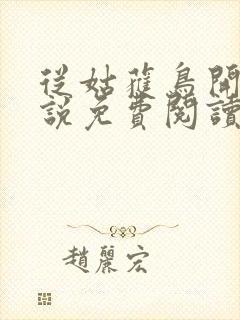 從姑蘿鳥開
說免費閱讀
趙麗宏